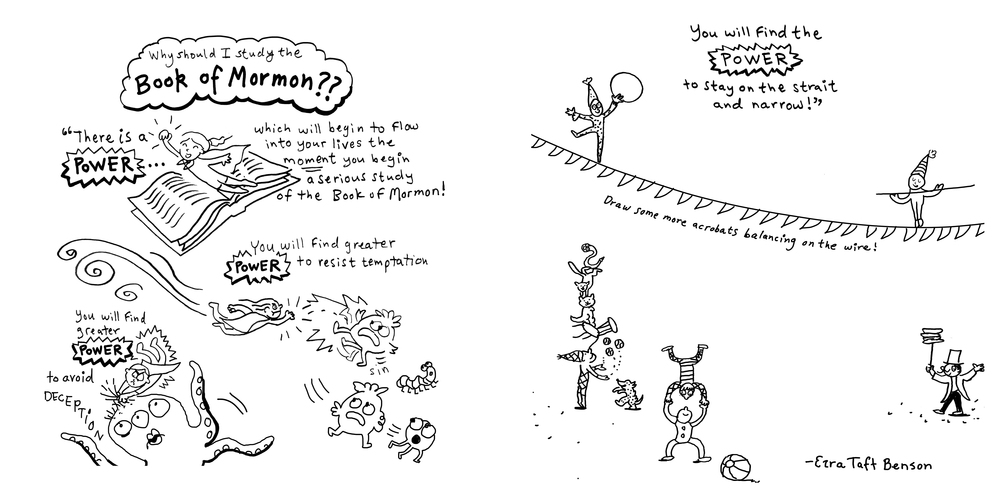 Why should I study the
Book of Mormon??
"There is a
POWER...
which will begin to flow
into your lives the
moment you begin
a serious study
of the Book of Mormon!
You will find greater
POWER to resist temptation
sin
You will find
greater
POWER
to avoid
DECEPTION
You will find the
POWER
to stay on the strait
and narrow!"
Draw some more acrobats balancing on the wire!
-Ezra Taft Benson